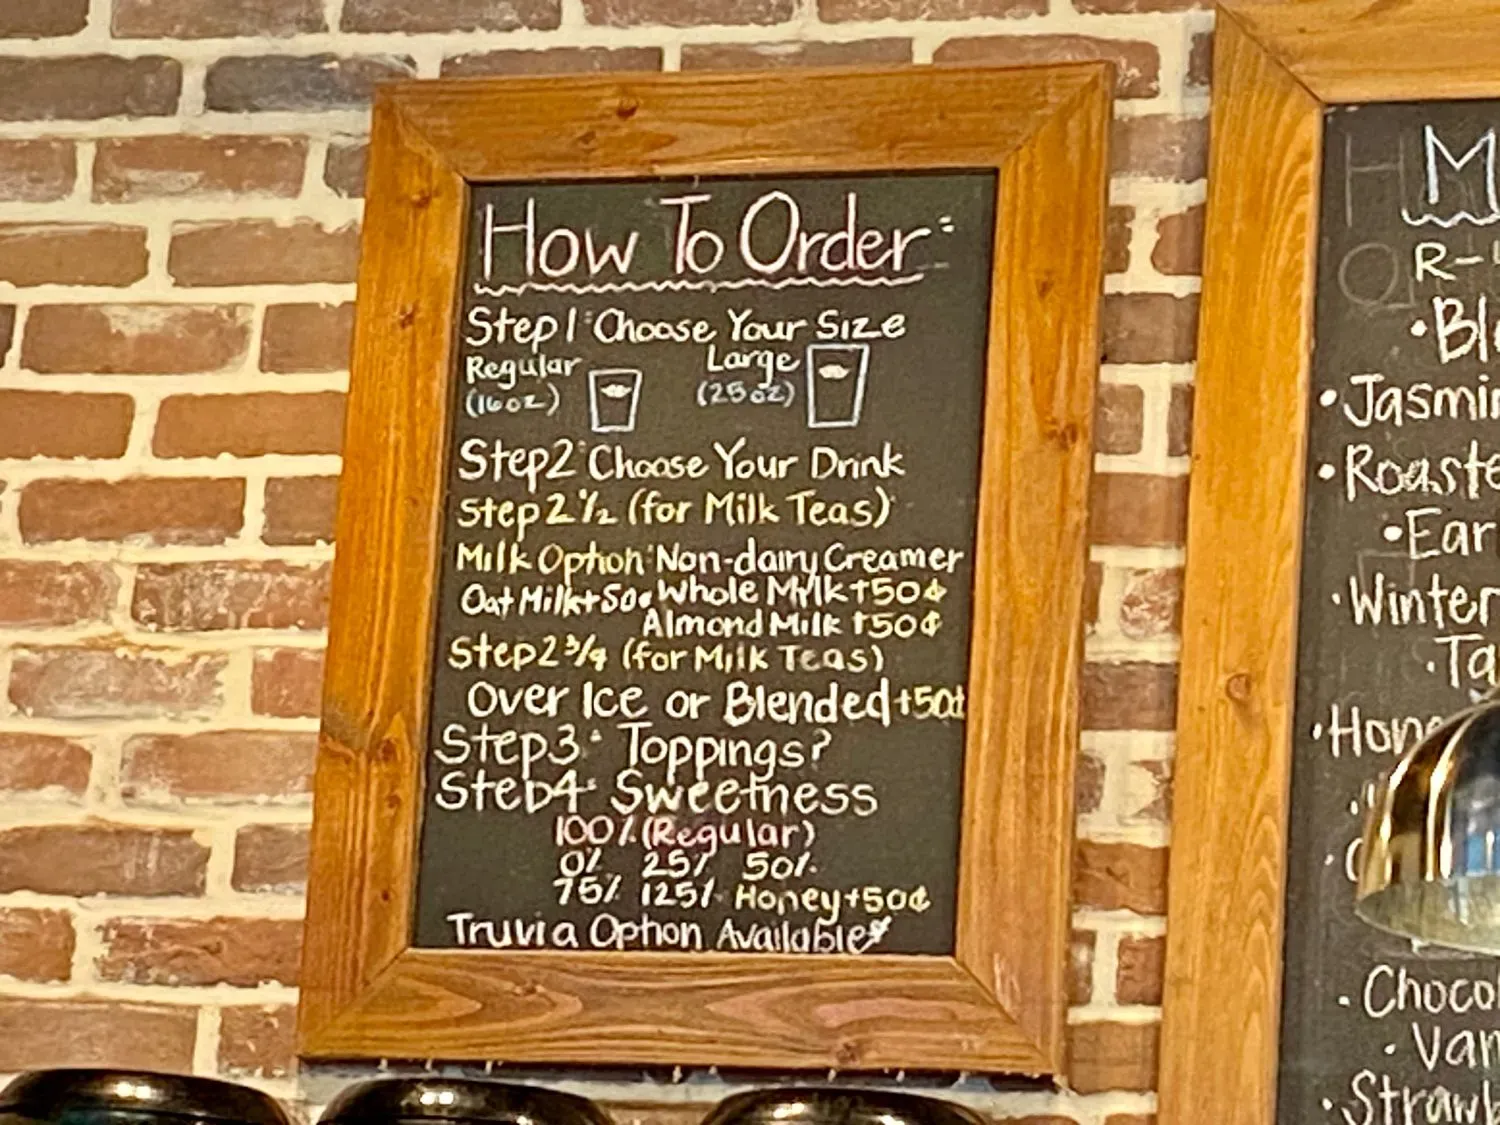 How To Order:
Step 1: Choose Your Size
Regular Large
(16oz) (25oz)
Step 2: Choose Your Drink
Step 2 1/2 (for Milk Teas)
Milk Option: Non-dairy Creamer
Oat Milk+50¢ Whole Milk+50¢
Almond Milk +50¢
Step 2 3/4 (for Milk Teas)
Over Ice or Blended+50¢
Step 3: Toppings?
Step 4: Sweetness
100% (Regular)
0% 25% 50%
75% 125% Honey+50¢
Truvia Option Available*
M
R-
•Bl
•Jasmin
•Roaste
•Ear
•Winter
•Ta
•Hone
•Chocol
•Van
•Strawb